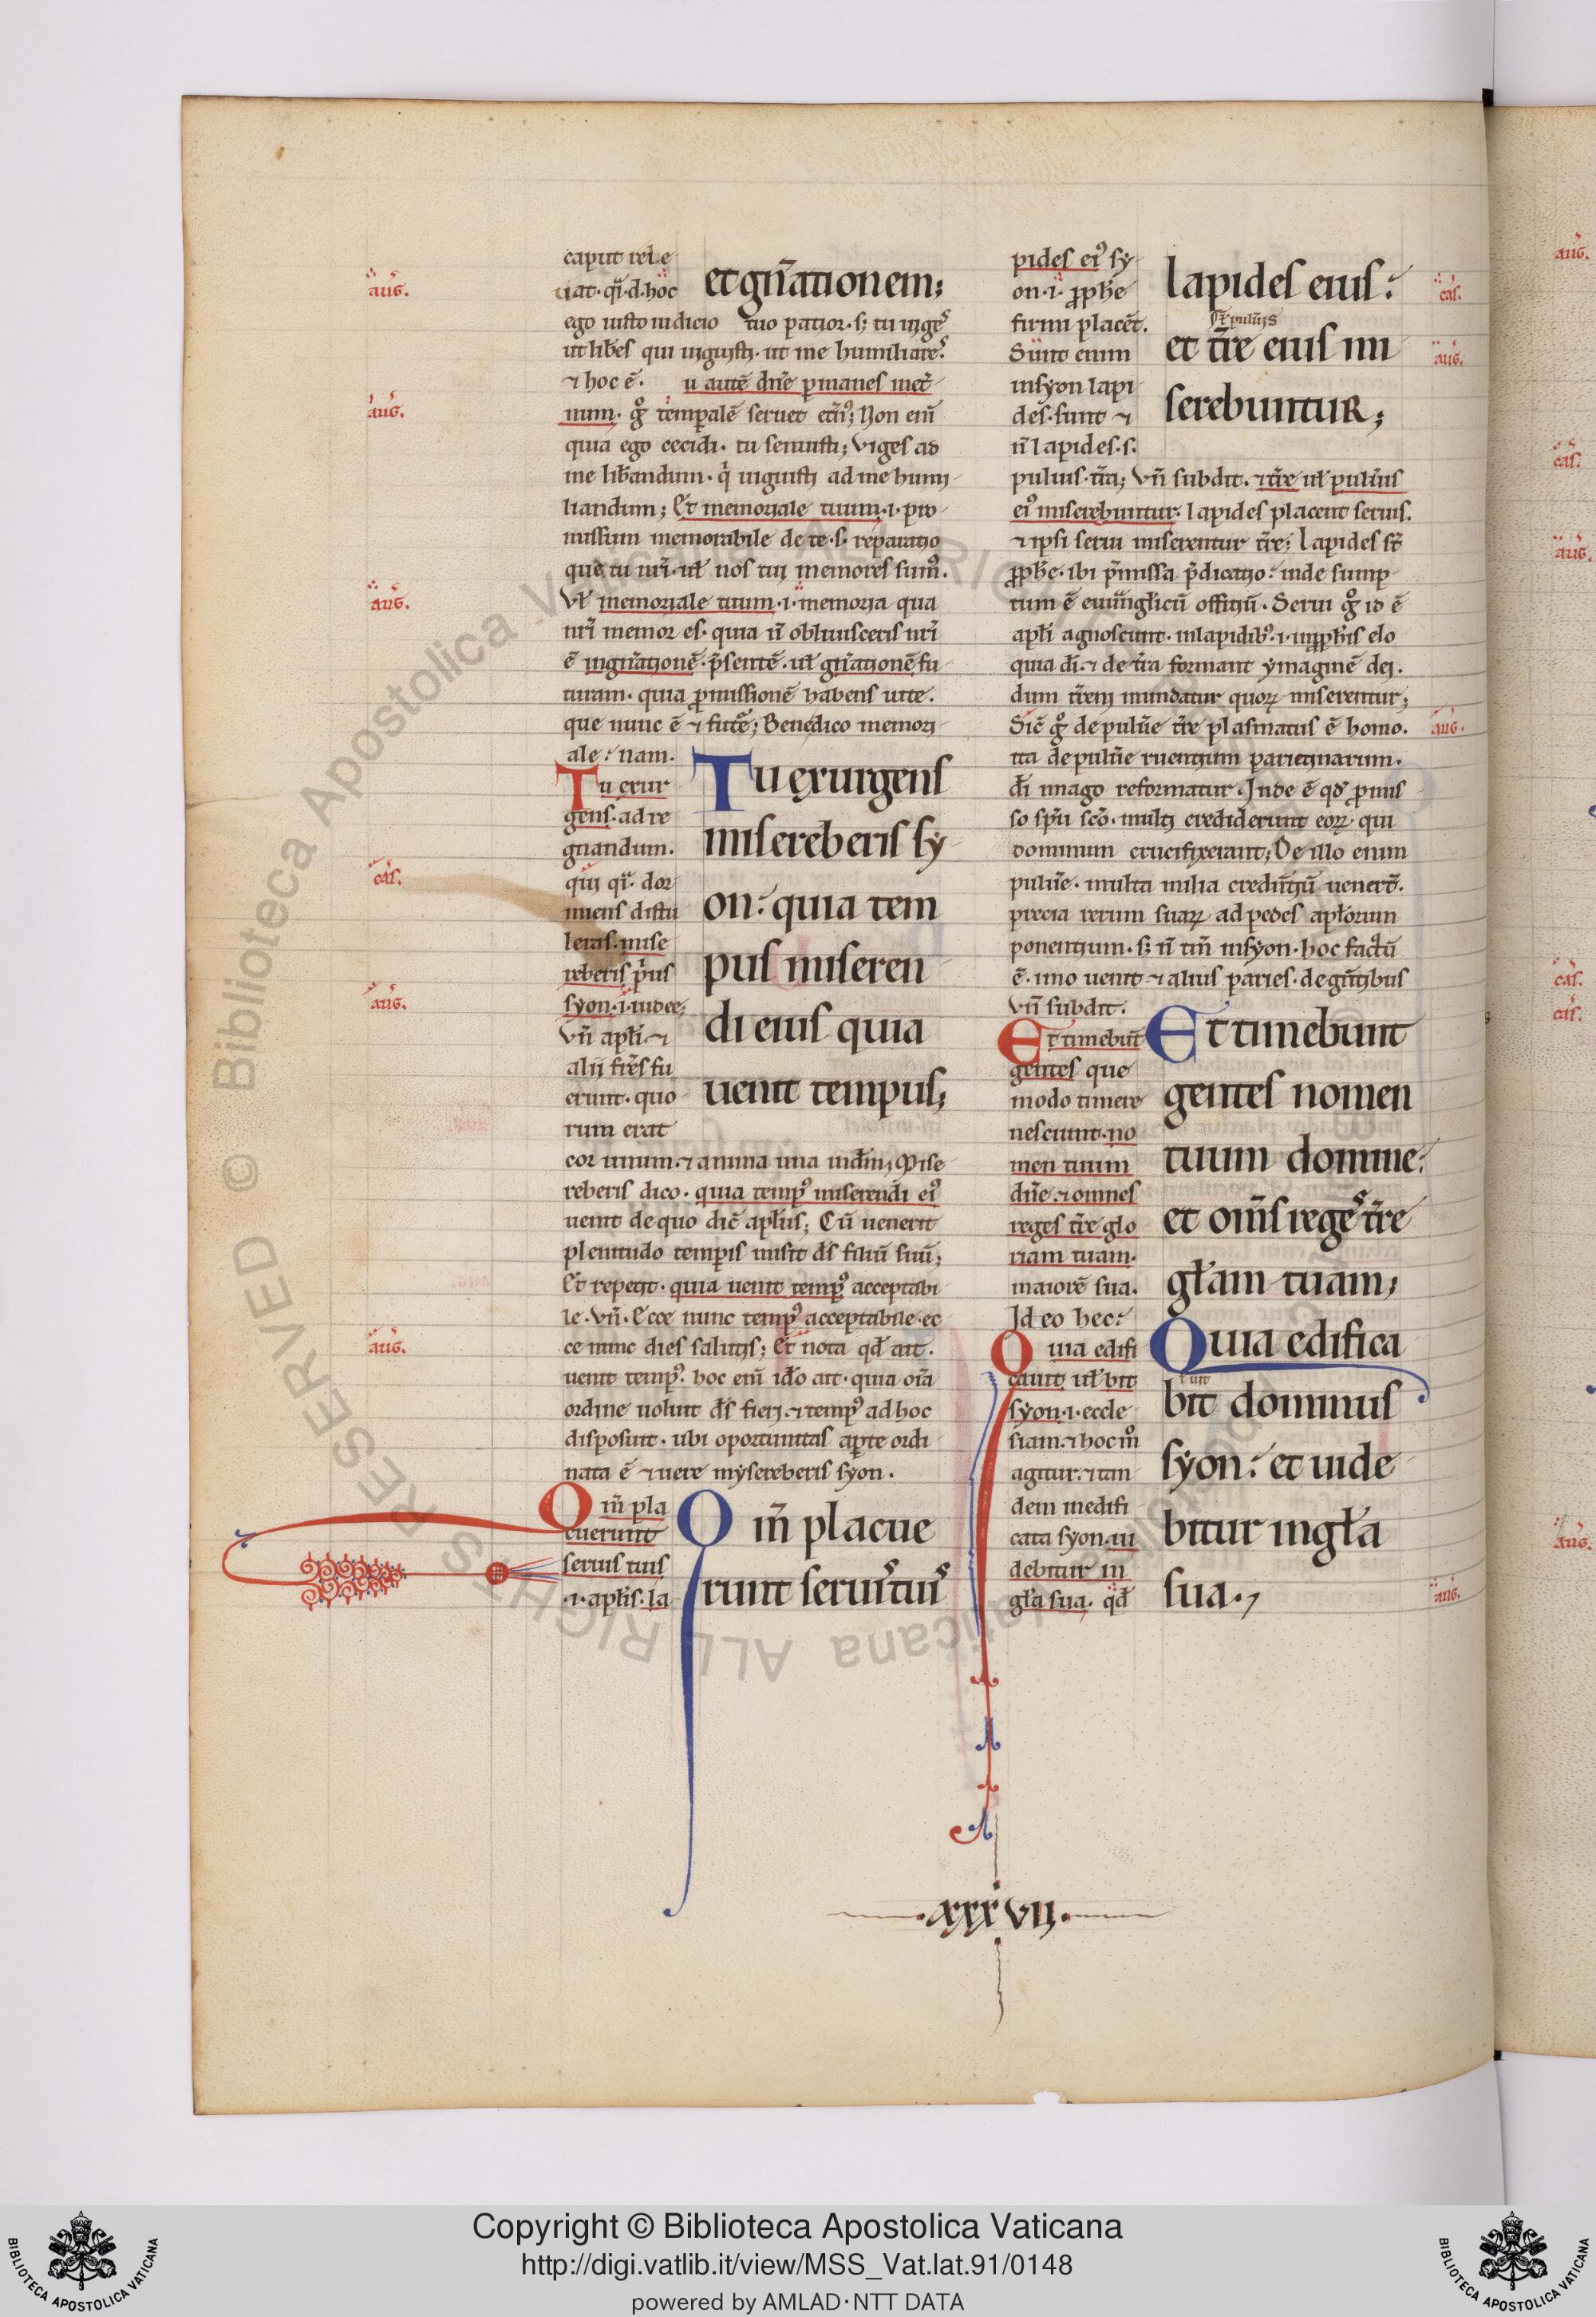 caput rele
uat. qi. d. hoc
ego iusto iudicio tuo patior. s; tu inges
ut liběs qui uiguisti. ut me humiliares.
⁊ hoc ē. u autē dn̄e p̱manes inet̄
num. gͦ temp̱alē seruet et̄nꝰ; Non eni̅
quia ego cecidi. tu senuisti; Viges ad
me lib̄andum. qͥ uiguisti ad me humi
liandum; Et memoriale tuum .i. pro
missum memorabile de te .s. reparatio
que tu nr̄i. uł nos tui memores sumꝰ.
Vł memoriale tuum .i. memoria qua
nr̄i memor es. quia n̄ obliuisceris nr̄i
ē in gn̄ationē. p̄sentē. uł gn̄ationē fu
turam. quia ꝓmissionē habens uite.
que nunc ē ⁊ future; Benedico memori
ale: nam.
et gn̄ationem;
Tu exur
gens. ad re
gnandum.
qui qͣi. dor
miens distu
leras. mise
reberis pͥus
syon .i. iudee;
Vn̄ apłi. ⁊
alij fr̄es fu
erunt. quo
rum erat
Tu exurgens
misereberis sy
on: quia tem
pus miseren
di eius quia
uenit tempus;
cor unum. ⁊ anima una in dn̄m; Mise
reberis dico. quia tempꝰ miserendi eiꝰ
uenit de quo dic̄ apłus; Cū uenerit
plenitudo temp̱is misit d̄s filiū suū;
Et repetit. quia uenit tempꝰ acceptabi
le. Vn̄. Ecce nunc tempꝰ acceptabile. ec
ce nunc dies salutis; Et nota qd̄ ait.
uenit tempꝰ. hoc eni̅ id̄o ait. quia oīa
ordine uoluit d̄s fieri. ⁊ tempꝰ ad hoc
disposuit. ubi oportunitas ap̱te ordi
nata ē ⁊ uere mysereberis syon.
Qm̄ pla
cuerunt
seruis tuis
.i. apłis. la
Qm̄ placue
runt seruis tuis
pides eiꝰ sy
on .i. ꝓph̄e
firmi placēt.
Sunt enim
in syon lapi
des. sunt ⁊
n̄ lapides. s.
lapides eius:
puluis
et tr̄e eius mi
serebuntur;
puluis. tr̄a; Vn̄ subdit. ⁊ tr̄e uł puluis
eiꝰ miserebuntur. lapides placent seruis.
⁊ ipsi serui miserentur tr̄e; Lapides st̄
ꝓph̄e. ibi p̄missa p̄dicatio: inde sump
tum ē euuāglicū offitiū. Serui gͦ id ē
apłi agnoscunt. in lapidibꝰ .i. in ꝓph̄is elo
quia di. ⁊ de tr̄a formant ymaginē dei.
dum tr̄eni mundatur quoꝝ miserentur;
Sic̄ gͦ de puluere tr̄e plasmatus ē homo.
ita de puluere ruentium parietinarum.
d̄i imago reformatur. Inde ē qd̄ ꝓmis
so sp̄u sc̄o. multi crediderunt eoꝝ qui
dominum crucifixerant; De illo enim
puluere. multa milia credentiū uener̄t.
precia rerum suaꝝ ad pedes apłorum
ponentium. s; n̄ tm̄ in syon. hoc factū
ē. imo uenit ⁊ alius paries. de gentibus
vn̄ subdit.
Et timebūt
gentes que
modo timere
nesciunt. no
men tuum
dn̄e. ⁊ omnes
reges tr̄e glo
riam tuam.
maiorē sua.
Id eo hec:
Et timebunt
gentes nomen
tuum domine:
et om̄s reges tr̄e
głam tuam;
Quia edifi
cauit uł bit
syon .i. eccle
siam. ⁊ hoc mͦ
agitur. ⁊ tan
dem in edifi
cata syon. ui
debitur in
gła sua. qd̄
Quia edifica
bit dominus
syon: et uide
bitur in gła
sua.
aug.
aug.
aug.
cas.
aug.
aug.
cas.
aug.
aug.
aug.
.xxxvii.
aug.
cas.
aug.
cas.
cas.
aug.
Biblioteca Apostolica Vaticana ALL RIGHTS RESERVED ©
Copyright © Biblioteca Apostolica Vaticana
http://digi.vatlib.it/view/MSS_Vat.lat.91/0148
powered by AMLAD·NTT DATA
BIBLIOTECA APOSTOLICA VATICANA
BIBLIOTECA APOSTOLICA VATICANA